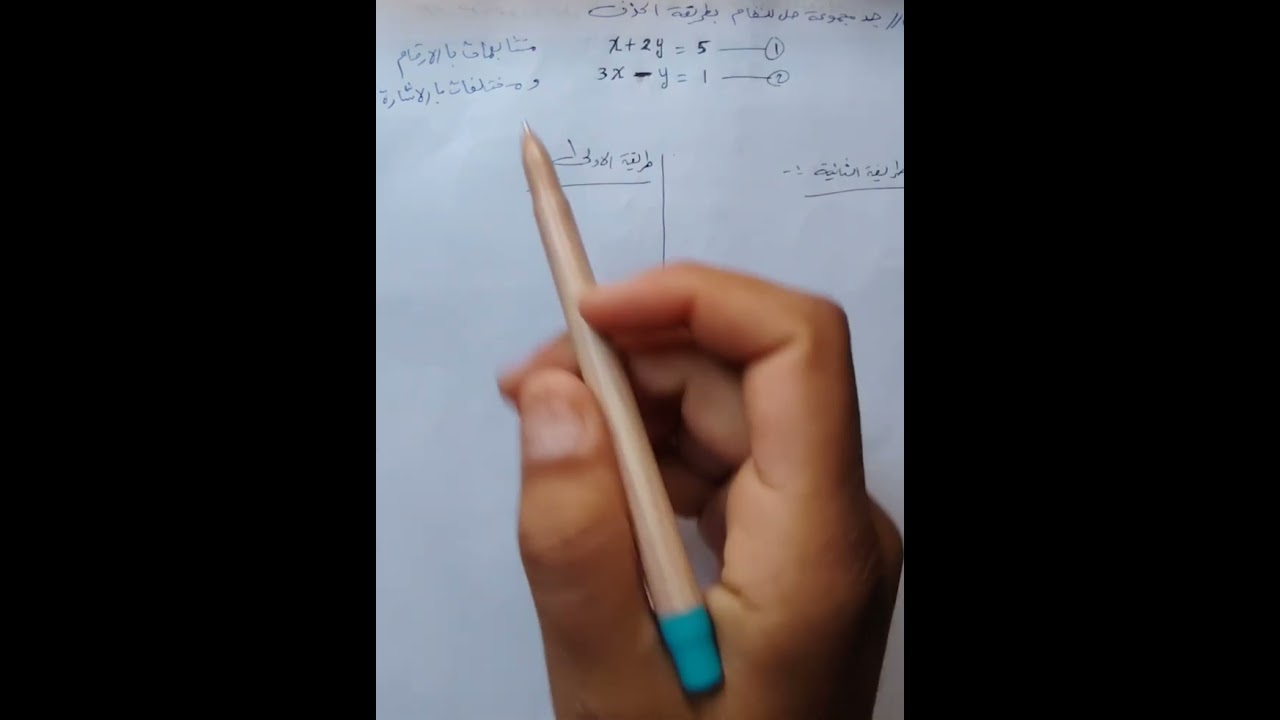 جد مجموعة حل للنظام بطريقة الحذف
x + 2y = 5 —— ①
3x - y = 1 —— ②
متشابهات بالارقام
و مختلفات بالاشارة
طريقة الثانية :-
طريقة الاولى